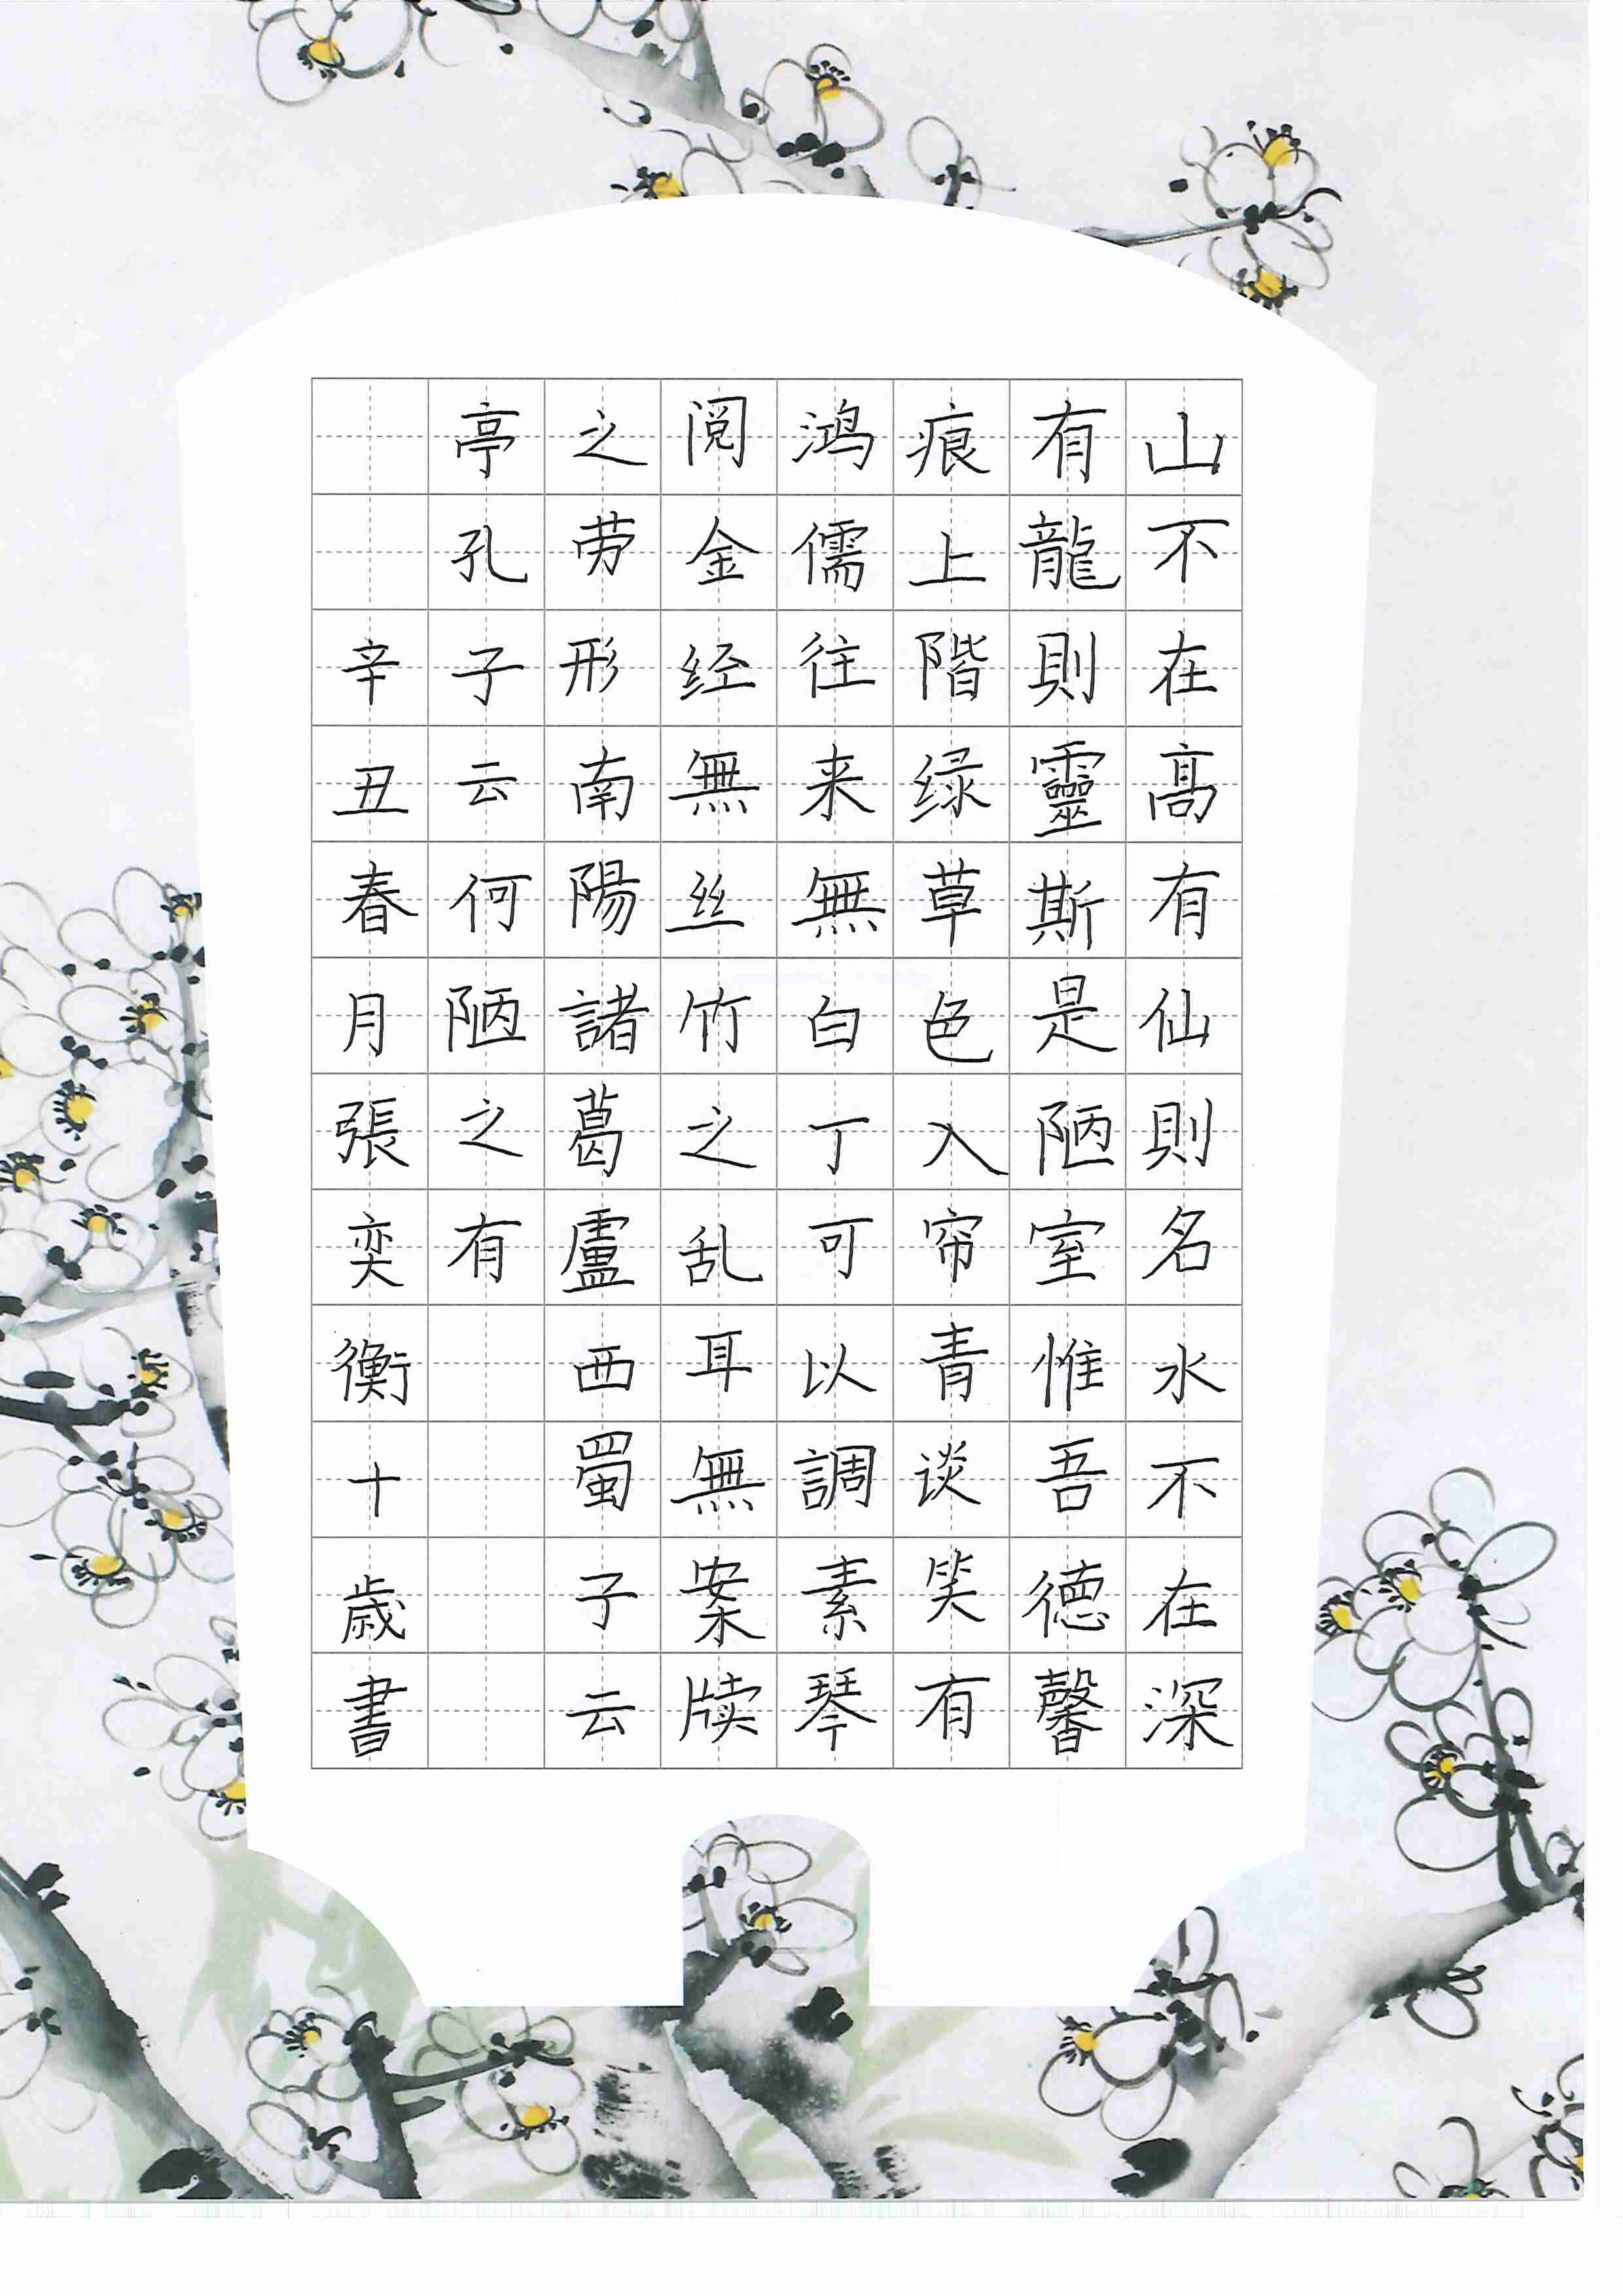 山不在高有仙則名水不在深
有龍則靈斯是陋室惟吾德馨
痕上階绿草色入帘青谈笑有
鸿儒往来無白丁可以調素琴
阅金经無丝竹之乱耳無案牍
之劳形南陽諸葛盧西蜀子云
亭孔子云何陋之有
辛丑春月張奕衡十歳書